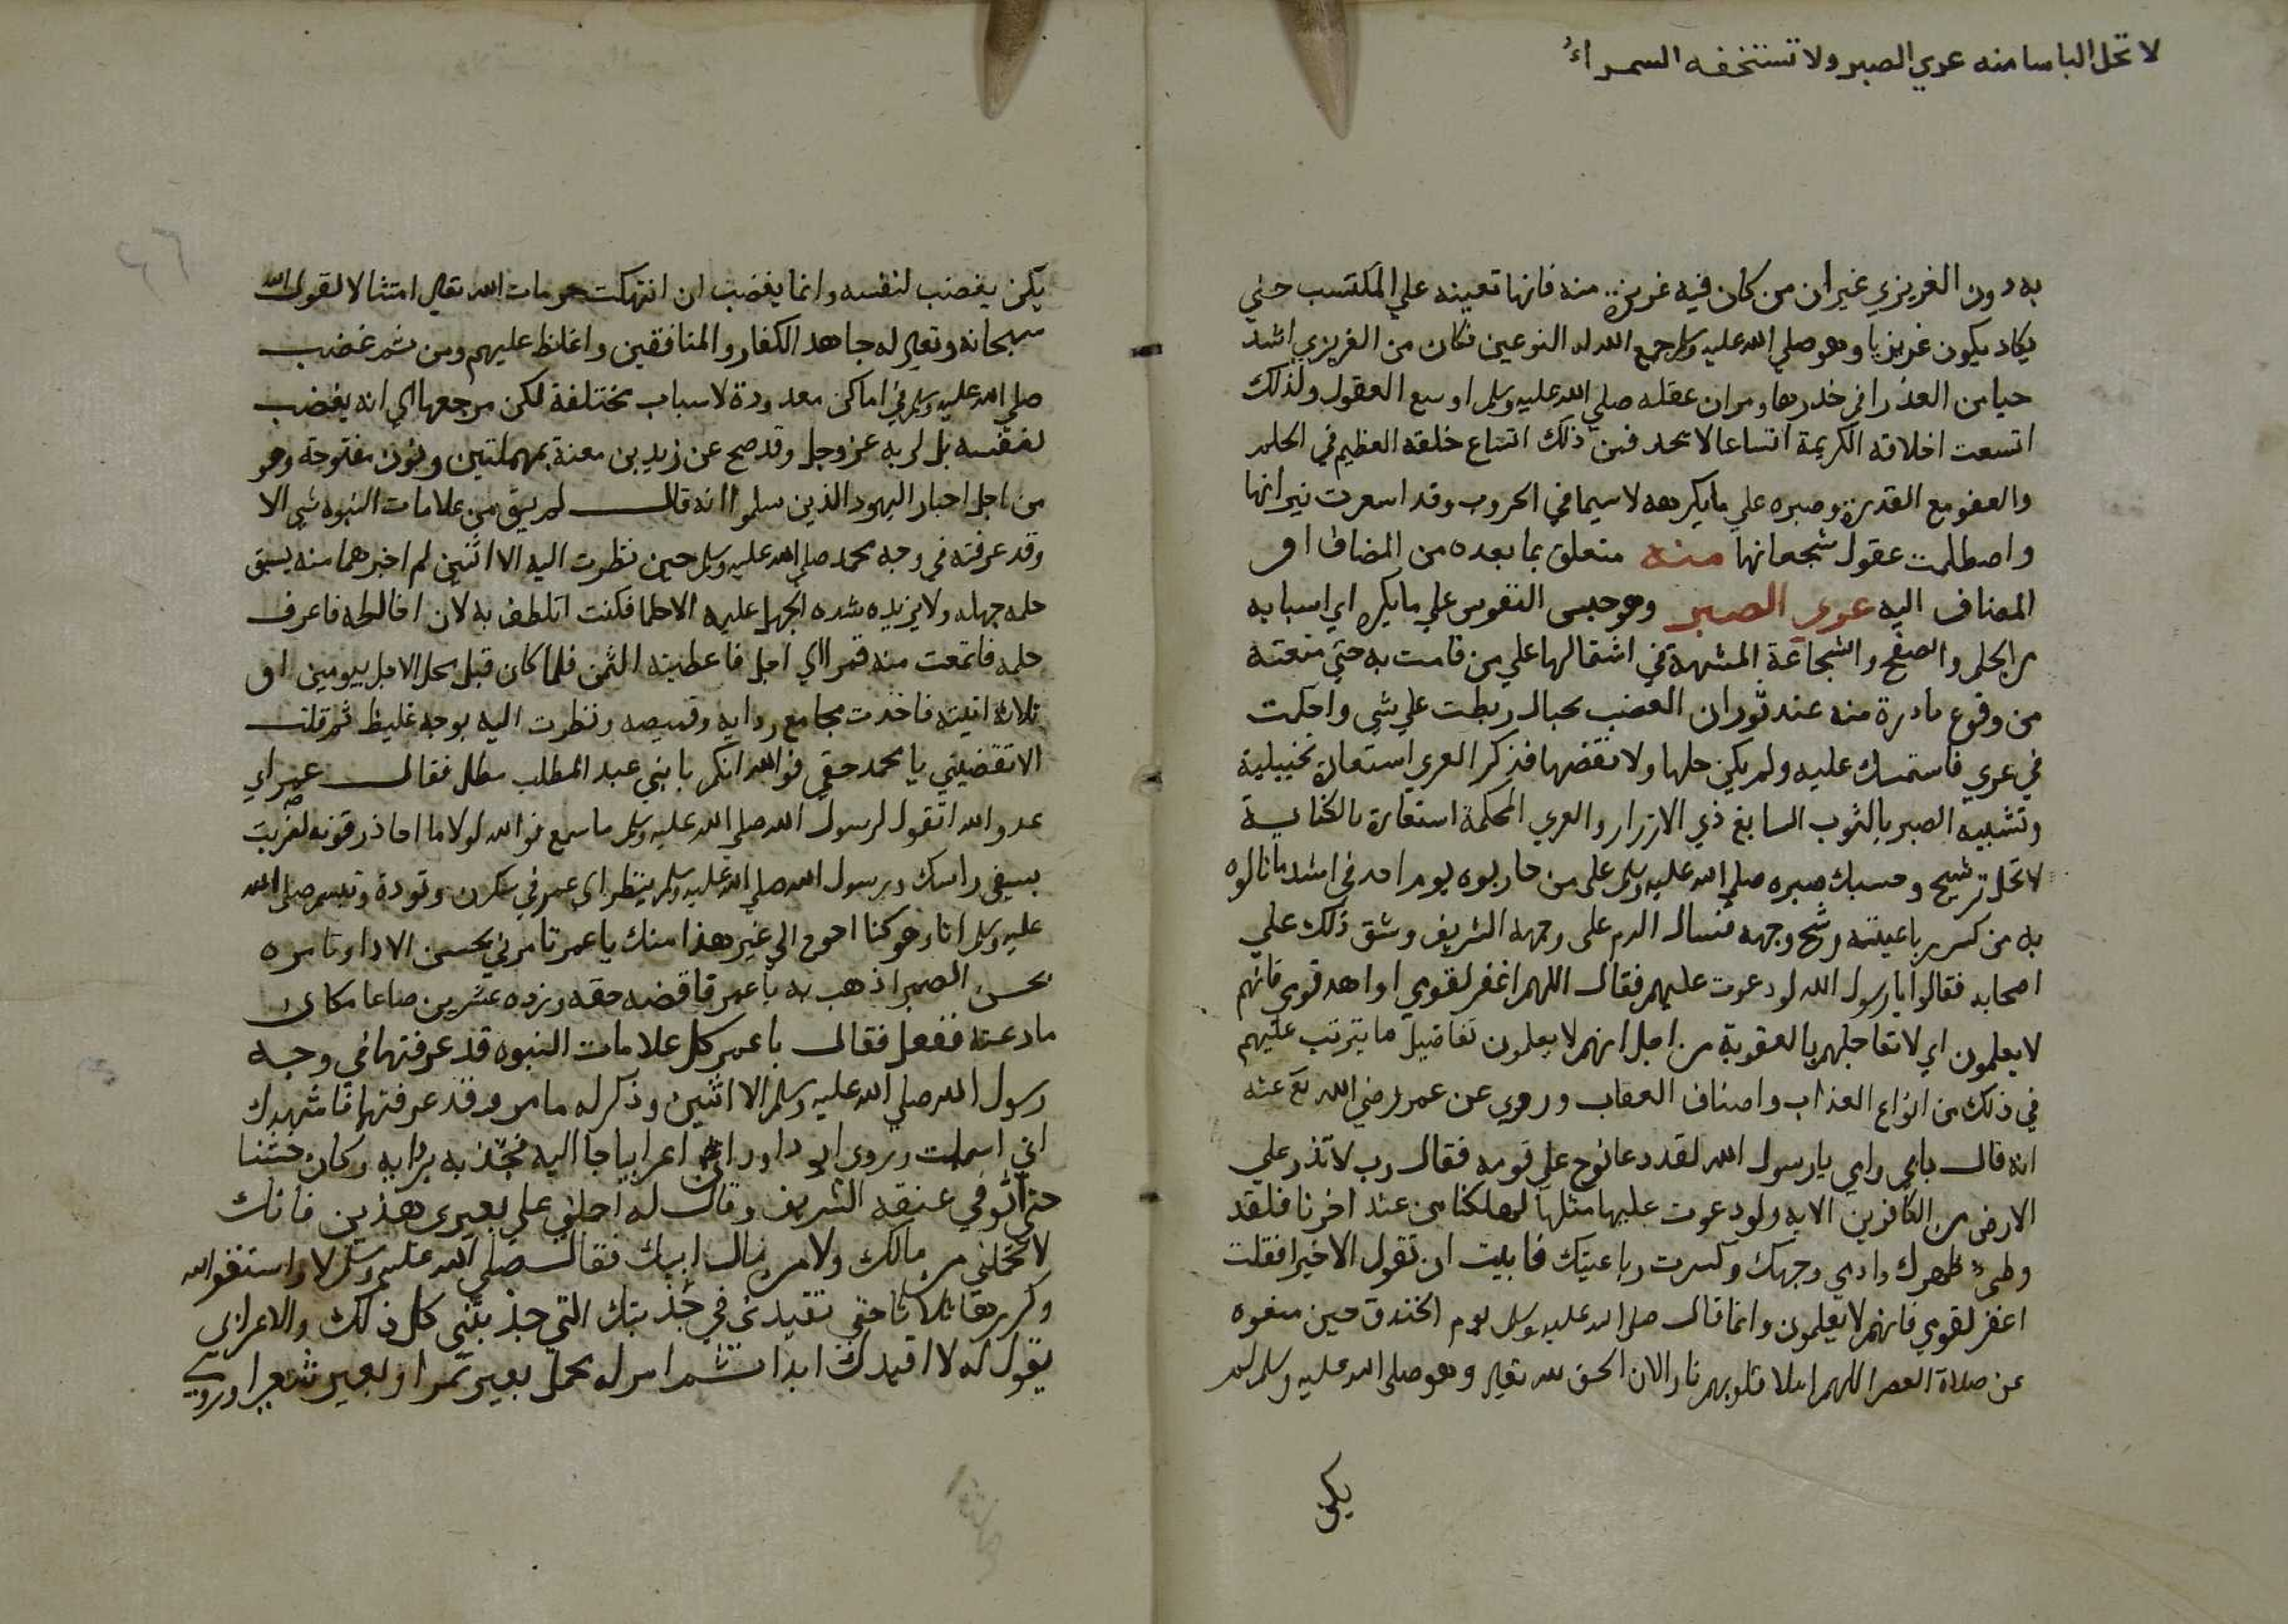 لا تحل الباسا منه عري الصبر ولا تستخفه السراء
به دون الغريزي غير ان من كان فيه غريزة منه فانها تعينه علي المكتسب حتي
يكاد يكون غريزيا وهو صلي الله عليه وسلم جمع الله له النوعين فكان من الغريزي اشد
حيا من العذرا في خدرها ومر ان عقله صلي الله عليه وسلم اوسع العقول ولذلك
اتسعت اخلاقه الكريمة اتساعا لا يحد فمن ذلك اتساع خلقه العظيم في الحلم
والعفو مع القدرة وصبره علي ما يكرهه لا سيما في الحروب وقد اسعرت نيرانها
واصطلمت عقول شجعانها منه متعلق بما بعده من المضاف او
المضاف اليه عري الصبر وهو حبس النفوس علي ما يكره اي اسبابه
من الحلم والصفح والشجاعة المشبهة في اشتمالها علي من قامت به حتي منعته
من وقوع بادرة منه عند ثوران الغضب بحبال ربطت علي شي واحكمت
في عري فاستمسك عليه ولم يكن حلها ولا نقضها فذكر العري استعارة تخييلية
وتشبيه الصبر بالثوب السابغ ذي الازرار والعري المحكمة استعارة بالكناية
لا تحل ترشيح وحسبك صبره صلي الله عليه وسلم علي من حاربوه يوم احد في اشد ما نالوه
به من كسر رباعيته وشج وجهه فسال الدم علي وجهه الشريف وشق ذلك علي
اصحابه فقالوا يا رسول الله لو دعوت عليهم فقال اللهم اغفر لقومي او اهد قومي فانهم
لا يعلمون اي لا تعاجلهم بالعقوبة من اجل انهم لا يعلمون تفاصيل ما يترتب عليهم
في ذلك من انواع العذاب واصناف العقاب وروي عن عمر رضي الله تع عنه
انه قال بابي وامي يا رسول الله لقد دعا نوح علي قومه فقال رب لا تذر علي
الارض من الكافرين الاية ولو دعوت عليها مثلها لهلكنا من عند اخرنا فلقد
وطي ظهرك وادمي وجهك وكسرت رباعيتك فابيت ان تقول الا خيرا فقلت
اغفر لقومي فانهم لا يعلمون وانما قال صلي الله عليه وسلم يوم الخندق حين منعوه
عن صلاة العصر اللهم املا قلوبهم نارا لان الحق لله تعالي وهو صلي الله عليه وسلم لم
يكن
يكن يغضب لنفسه وانما يغضب ان انتهكت حرمات الله تعالي امتثالا لقول الله
سبحانه وتعالي له جاهد الكفار والمنافقين واغلظ عليهم ومن ثم غضب
صلي الله عليه وسلم في اماكن معدودة لاسباب مختلفة لكن مرجعها الي انه يغضب
لنفسه بل لربه عز وجل وقد صح عن زيد بن سعنة بمهملتين ونون مفتوحة وهو
من اجل احبار اليهود الذين سلموا انه قال لم يبق من علامات النبوه شي الا
وقد عرفته في وجه محمد صلي الله عليه وسلم حين نظرت اليه الا اثنين لم اخبرهما منه يسبق
حلمه جهله ولا يزيده شده الجهل عليه الا حلما فكنت اتلطف به لان اخالطه فاعرف
حلمه فابتعت منه تمرا الي اجل فاعطيته الثمن فلما كان قبل محل الاجل بيومين او
ثلاثة اتيته فاخذت مجامع ردايه وقميصه ونظرت اليه بوجه غليظ ثم قلت
الا تقضيني يا محمد حقي فوالله انكم يا بني عبد المطلب مطل فقال عمر اي
عدو الله اتقول لرسول الله صلي الله عليه وسلم ما اسمع فوالله لولا ما احاذر فوته لضربت
بسيفي راسك ورسول الله صلي الله عليه وسلم ينظر الي عمر في سكون وتودة وتبسم صلي الله
عليه وسلم انا وهو كنا احوج الي غير هذا منك يا عمر تامرني بحسن الادا وتامره
بحسن الصبر اذهب به يا عمر فاقضه حقه وزده عشرين صاعا مكان
ما رعته ففعل فقال يا عمر كل علامات النبوه قد عرفتها في وجه
رسول الله صلي الله عليه وسلم الا اثنين وذكر له ما مر وقد عرفتها فاشهدك
اني اسلمت وروي ابو داود ان اعرابيا جا اليه فجذبه بردايه وكان خشنا
حتي اثر في عنقه الشريف وقال له احملني علي بعيري هذين فانك
لا تحملني من مالك ولا من مال ابيك فقال صلي الله عليه وسلم لا واستغفر الله
وكررها ثلاثا حتي تقيدني في جذبتك التي جذبتني كل ذلك والاعرابي
يقول له لا اقيدك ابدا ثم امر له بحمل بعير تمرا وبعير شعيرا وروي